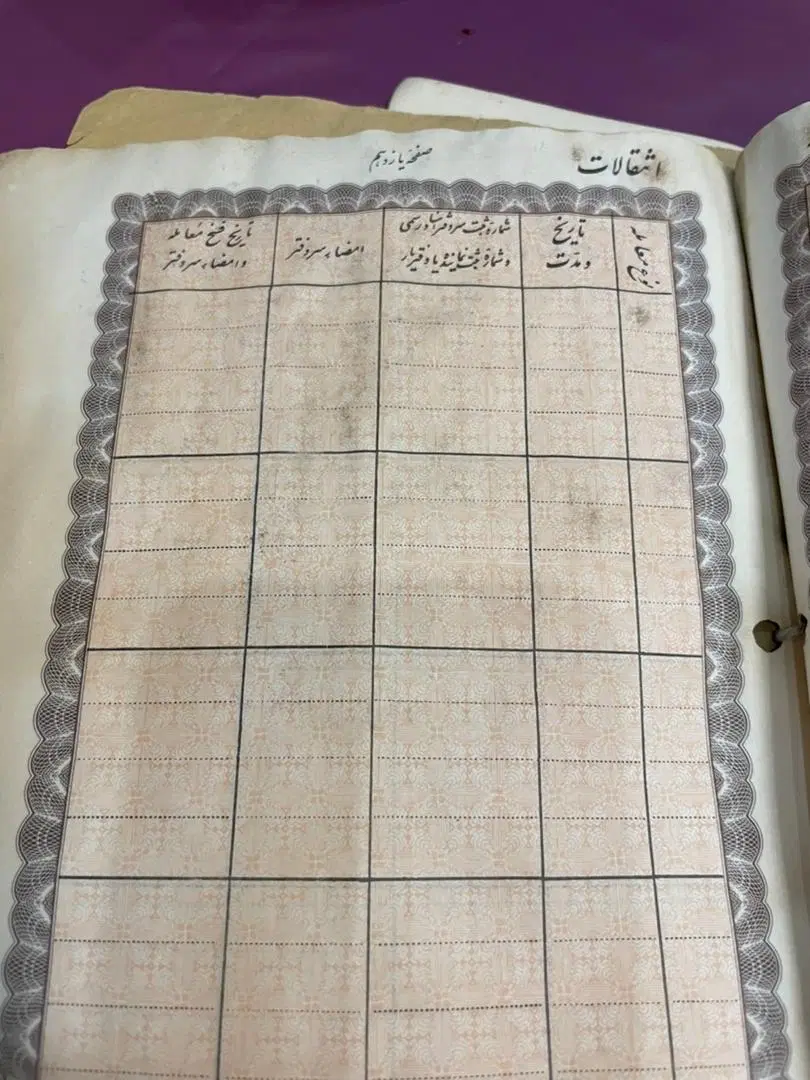 انتقالات
صفحه یازدهم
نوع معامله
تاریخ
و مدت
شماره ثبت سر دفتر اسناد رسمی
و شماره ثبت نماینده یا دفتریار
امضاء سر دفتر
تاریخ فسخ معامله
و امضاء سر دفتر